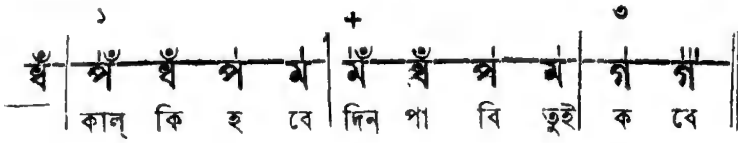 ১ + ৩
ধঁ | পঁ ধঁ প ম | মঁ ধঁ প ম | গ গ ||
কাল্ কি হ বে | দিন পা বি তুই | ক বে